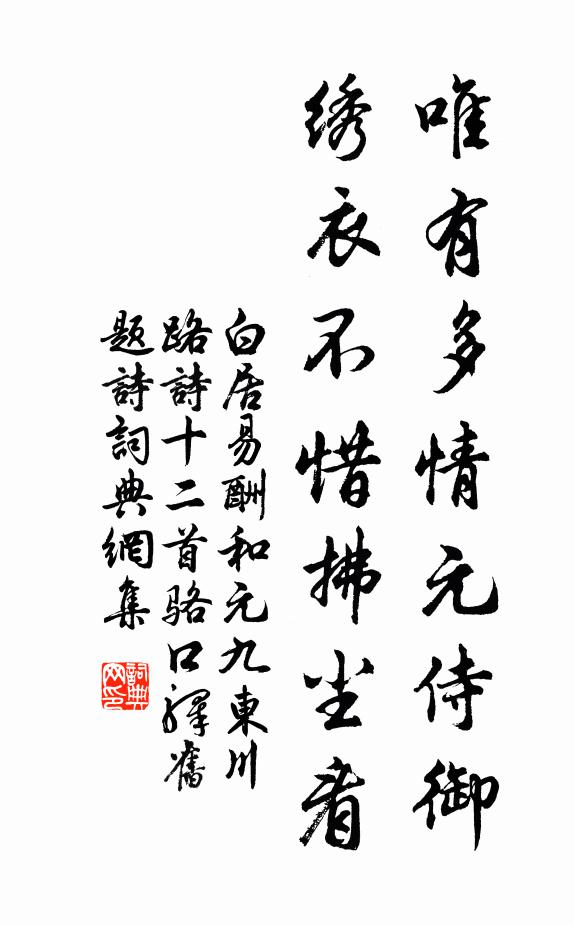 唯有多情元侍御
绣衣不惜拂尘看
白居易酬和元九東川
路詩十二首骆口驛舊
题詩詞典網集
詞典
网印